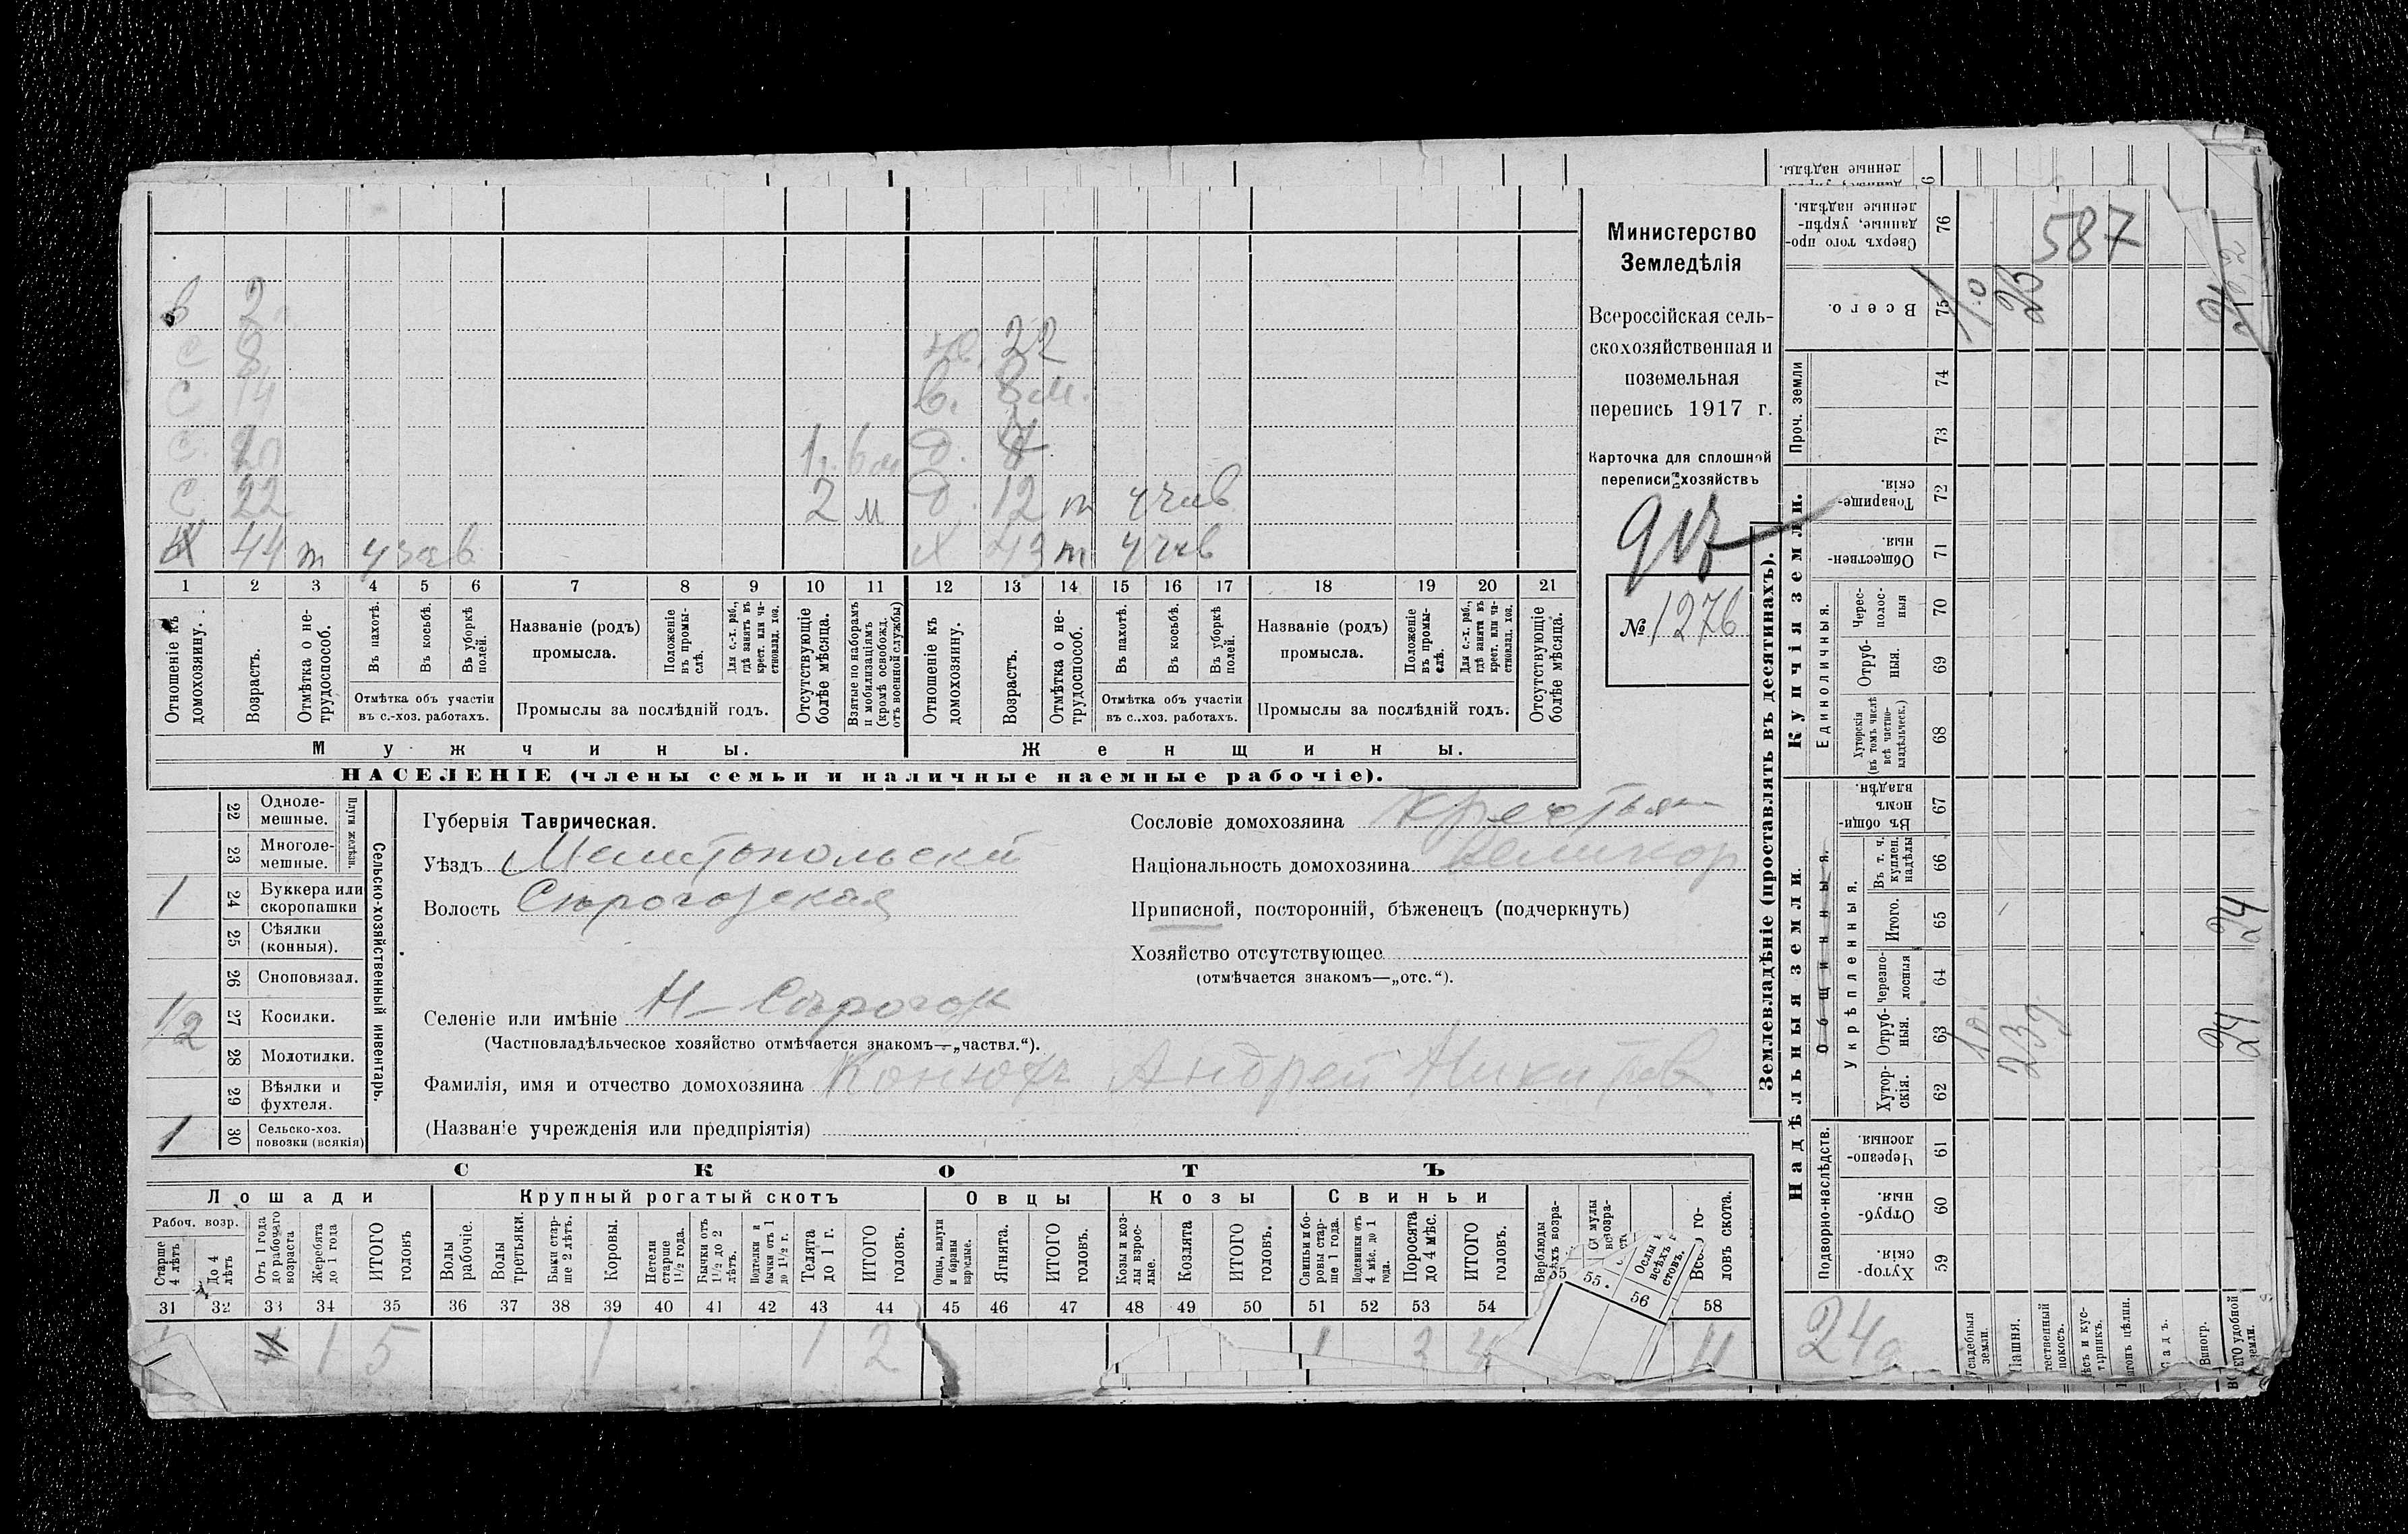 Министерство
Земледѣлія
Всероссійская сель-
скохозяйственная и
поземельная
перепись 1917 г.
Карточка для сплошной
переписи хозяйствъ
№ 1276
в 2
с 8 22
с 14 в. 8 м.
с 1 г. 6 м д.
с 22 2 м д. 12 т
Х 44 т Х 43 т
1 2 3 4 5 6 7 8 9 10 11 12 13 14 15 16 17 18 19 20 21
Отношеніе къ домохозяину.
Возрастъ.
Отмѣтка о не-трудоспособ.
Въ пахотѣ.
Въ косьбѣ.
Въ уборкѣ полей.
Отмѣтка объ участіи
въ с.-хоз. работахъ.
Названіе (родъ)
промысла.
Положеніе въ промы-слѣ.
Для с.-х. раб., гдѣ занятъ въ крест. или ча-стновлад. хоз.
Промыслы за послѣдній годъ.
Отсутствующіе болѣе мѣсяца.
Взятые по наборамъ и мобилизаціямъ (кромѣ освобожд. отъ военной службы)
Отношеніе къ домохозяину.
Возрастъ.
Отмѣтка о не-трудоспособ.
Въ пахотѣ.
Въ косьбѣ.
Въ уборкѣ полей.
Отмѣтка объ участіи
въ с..хоз. работахъ.
Названіе (родъ)
промысла.
Положеніе въ промы-слѣ.
Для с.-х. раб., гдѣ занята въ крест. или ча-стновлад. хоз.
Промыслы за послѣдній годъ.
Отсутствующіе болѣе мѣсяца.
Мужчины.
Женщины.
НАСЕЛЕНІЕ (члены семьи и наличные наемные рабочіе).
Сельско-хозяйственный инвентарь.
Плуги желѣзн.
22 Одноле-мешные.
23 Многоле-мешные.
1 24 Буккера или скоропашки
25 Сѣялки (конныя).
26 Сноповязал.
1/2 27 Косилки.
28 Молотилки.
29 Вѣялки и фухтеля.
1 30 Сельско-хоз. повозки (всякія)
Губернія Таврическая.
Уѣздъ Мелитопольскій
Волость Сѣрогозская
Селеніе или имѣніе Н-Сѣрогозы
(Частновладѣльческое хозяйство отмѣчается знакомъ—„частвл.“).
Фамилія, имя и отчество домохозяина Конюхъ Андрей Никитов
(Названіе учрежденія или предпріятія)
Сословіе домохозяина Крестьян
Національность домохозяина Великор
Приписной, посторонній, бѣженецъ (подчеркнуть)
Хозяйство отсутствующее
(отмѣчается знакомъ—„отс.“).
СКОТЪ
Лошади
Крупный рогатый скотъ
Овцы
Козы
Свиньи
Рабоч. возр.
Старше 4 лѣтъ
До 4 лѣтъ
Отъ 1 года до рабочаго возраста
Жеребята до 1 года
ИТОГО головъ
Волы рабочіе.
Волы третьяки.
Быки стар-ше 2 лѣтъ.
Коровы.
Нетели старше 1 1/2 года.
Бычки отъ 1 1/2 до 2 лѣтъ.
Подтелки и бычки отъ 1 до 1 1/2 г.
Телята до 1 г.
ИТОГО головъ.
Овцы, валухи и бараны взрослые.
Ягнята.
ИТОГО головъ.
Козы и коз-лы взрос-лые.
Козлята
ИТОГО головъ.
Свиньи и бо-ровы стар-ше 1 года.
Подсвинки отъ 4 мѣс. до 1 года.
Поросята до 4 мѣс.
ИТОГО головъ.
Верблюды
ловъ скота.
31 32 33 34 35 36 37 38 39 40 41 42 43 44 45 46 47 48 49 50 51 52 53 54 55 56 58
1 5 1 1 2 1 3 4 11
Землевладѣніе (проставлять въ десятинахъ).
Надѣльныя земли.
Купчія земли.
Подворно-наслѣдств.
Общинныя.
Укрѣпленныя.
Единоличныя.
Проч. земли
Сверхъ того про-данные, укрѣп-ленные надѣлы. 76
Всего. 75
74
73
Товарище-скія. 72
Обществен-ныя 71
Черес-полос-ныя 70
Отруб-ныя. 69
Хуторскія (въ томъ числѣ всѣ частно-владѣльческ.) 68
Въ общин-номъ владѣн. 67
Въ т. ч. куплен. надѣлы 66
Итого. 65
Черезпо-лосныя 64
Отруб-ныя. 63
Хутор-скія. 62
Черезпо-лосныя. 61
Отруб-ныя. 60
Хутор-скія. 59
587
24
24
Пашня.
Садъ.
Виногр.